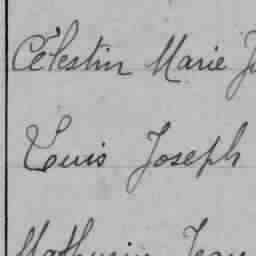 Célestin Marie
Louis Joseph
Mathurin Jean